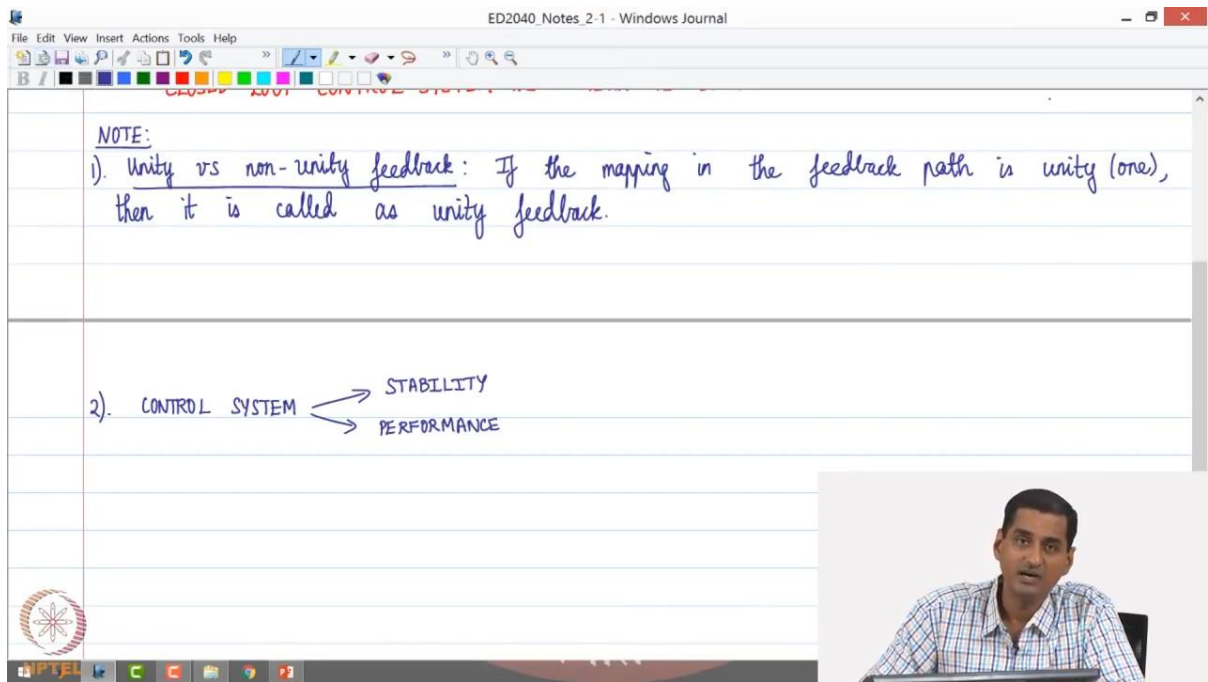 ED2040_Notes_2-1 - Windows Journal
File Edit View Insert Actions Tools Help
B I
CLOSED LOOP CONTROL SYSTEM
NOTE:
1). Unity vs non-unity feedback: If the mapping in the feedback path is unity (one),
then it is called as unity feedback.
STABILITY
2). CONTROL SYSTEM
PERFORMANCE
NPTEL